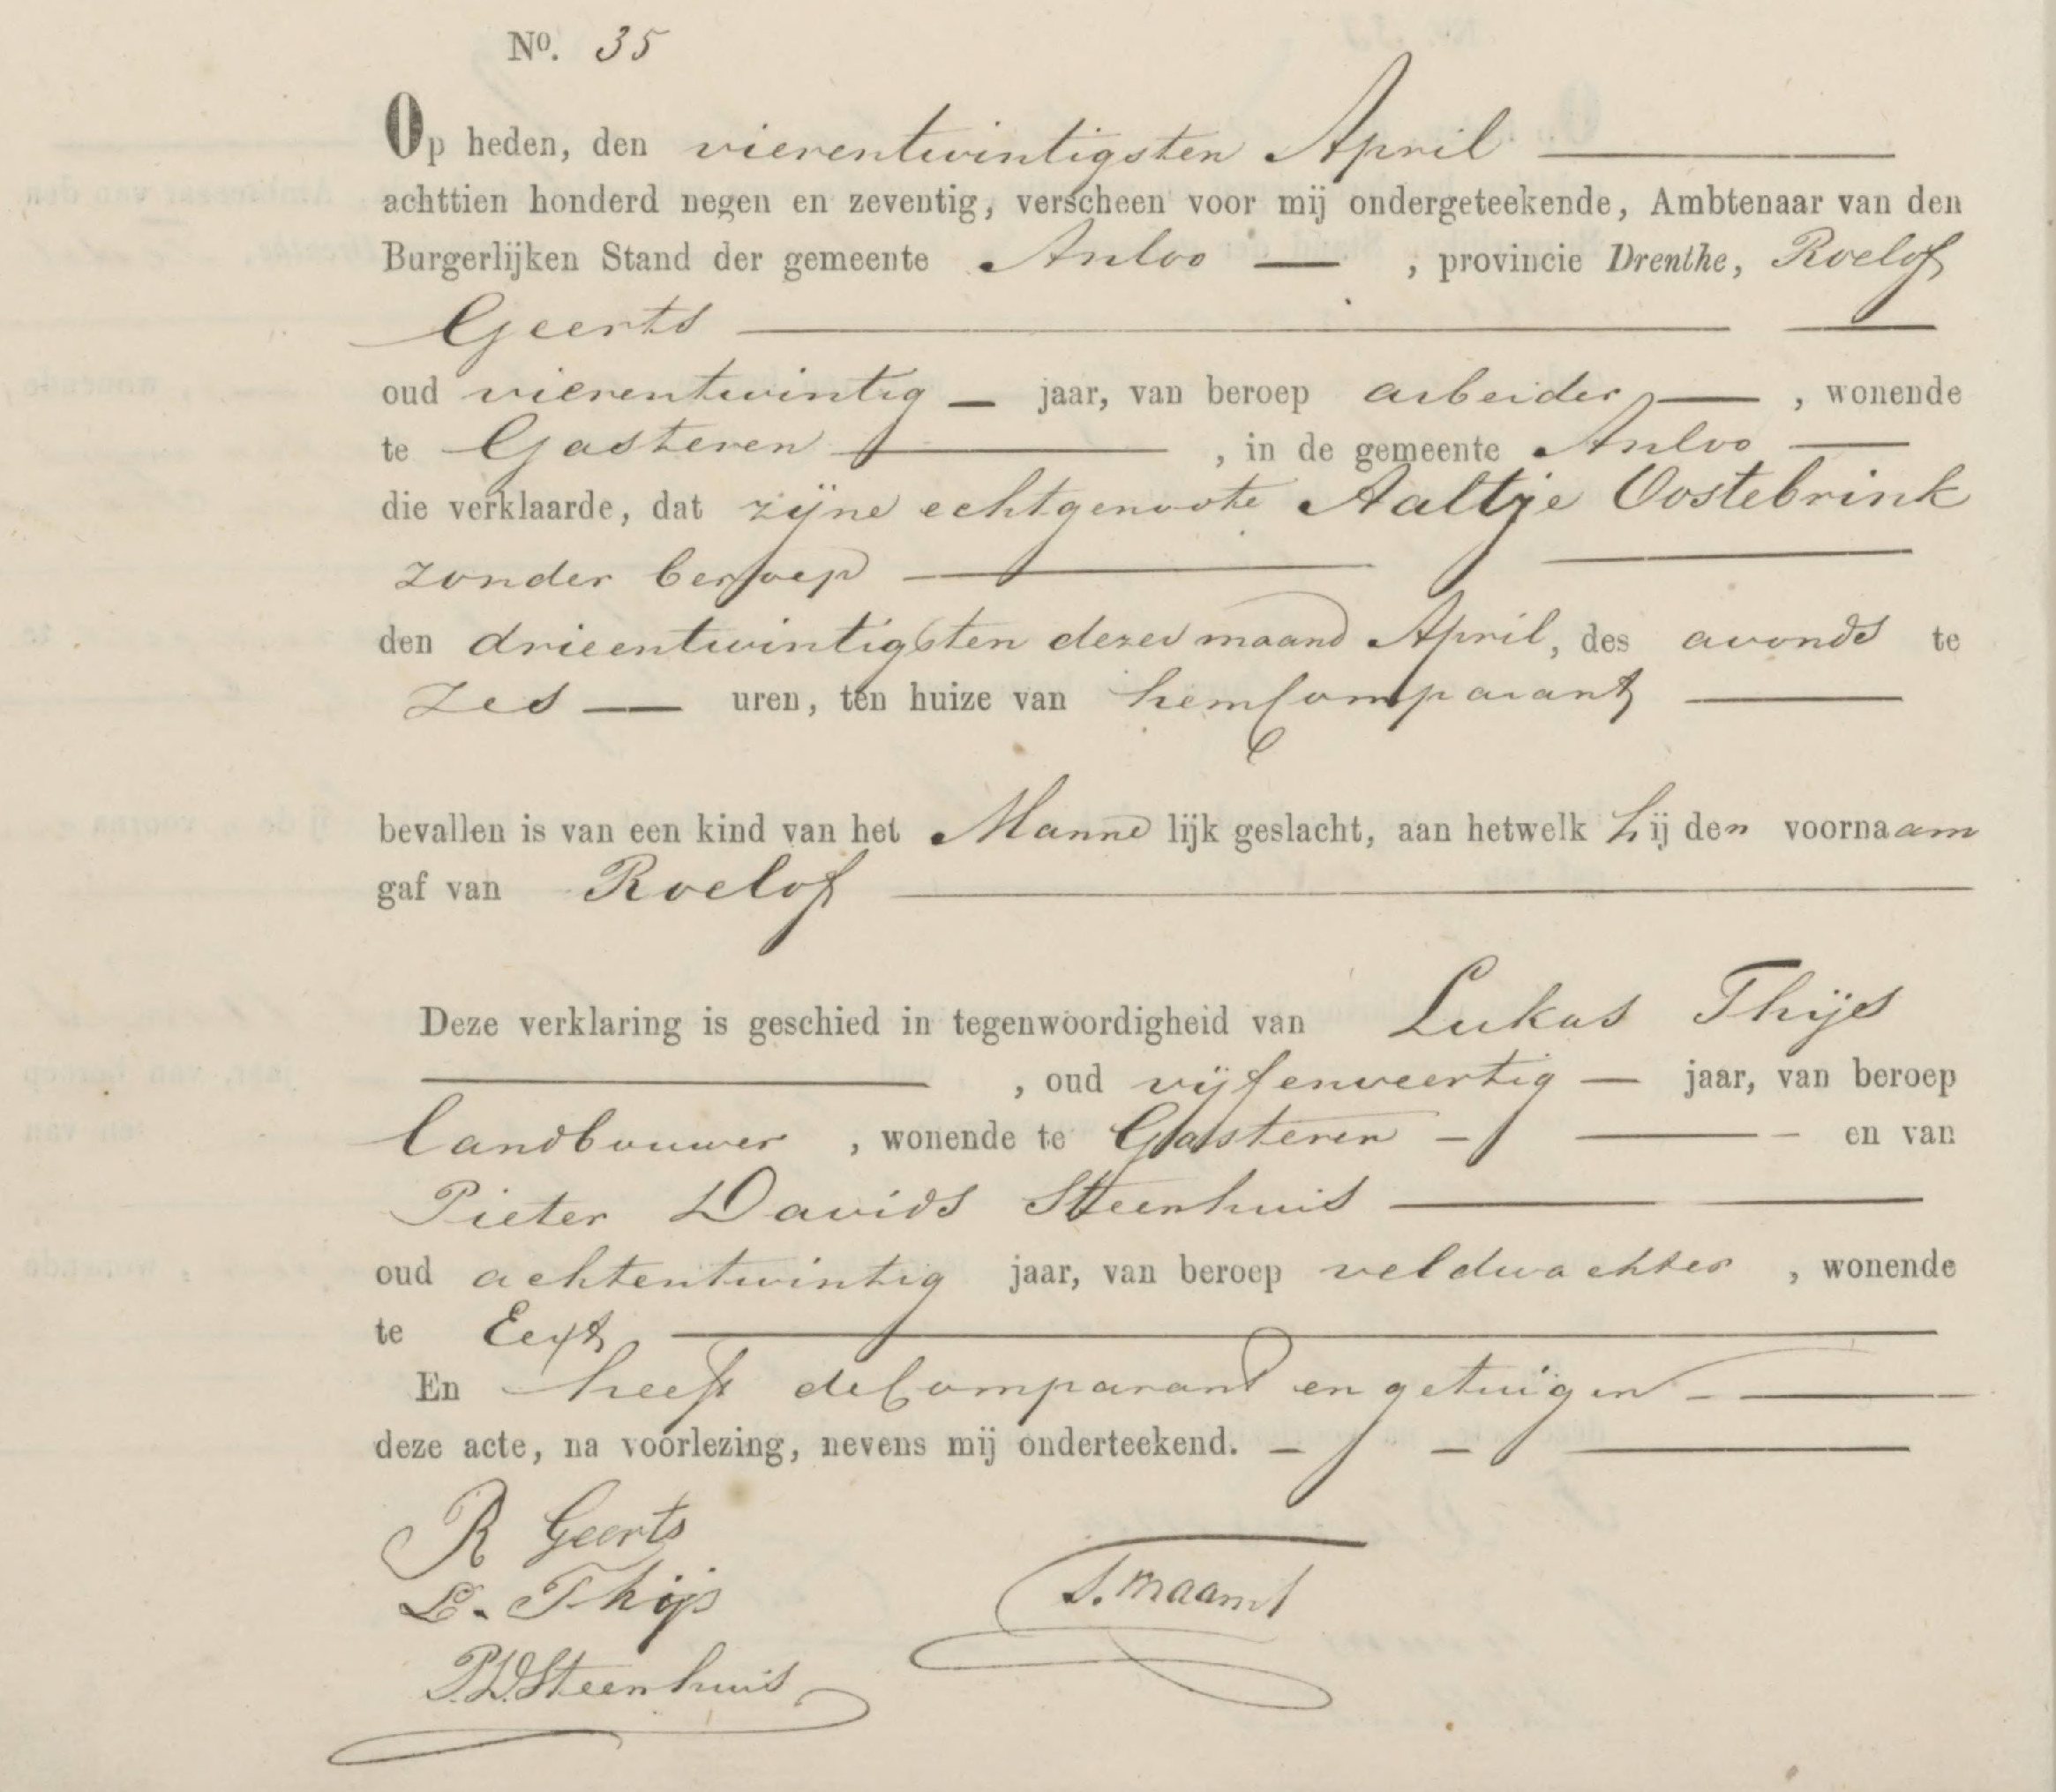 No. 35
Op heden, den vierentwintigsten April
achttien honderd negen en zeventig, verscheen voor mij ondergeteekende, Ambtenaar van den
Burgerlijken Stand der gemeente Anloo, provincie Drenthe, Roelof
Geerts
oud vierentwintig jaar, van beroep arbeider, wonende
te Gasteren, in de gemeente Anloo
die verklaarde, dat zijne echtgenoote Aaltje Oostebrink
zonder beroep
den drieentwintigsten dezer maand April, des avonds te
zes uren, ten huize van hem Comparant
bevallen is van een kind van het Mannelijk geslacht, aan hetwelk hij den voornaam
gaf van Roelof
Deze verklaring is geschied in tegenwoordigheid van Lukas Thijs
, oud vijfenveertig jaar, van beroep
landbouwer, wonende te Gasteren en van
Pieter Davids Steenhuis
oud achtentwintig jaar, van beroep veldwachter, wonende
te Eext
En heeft de Comparant en getuigen
deze acte, na voorlezing, nevens mij onderteekend.
R Geerts
L. Thijs
P.D. Steenhuis